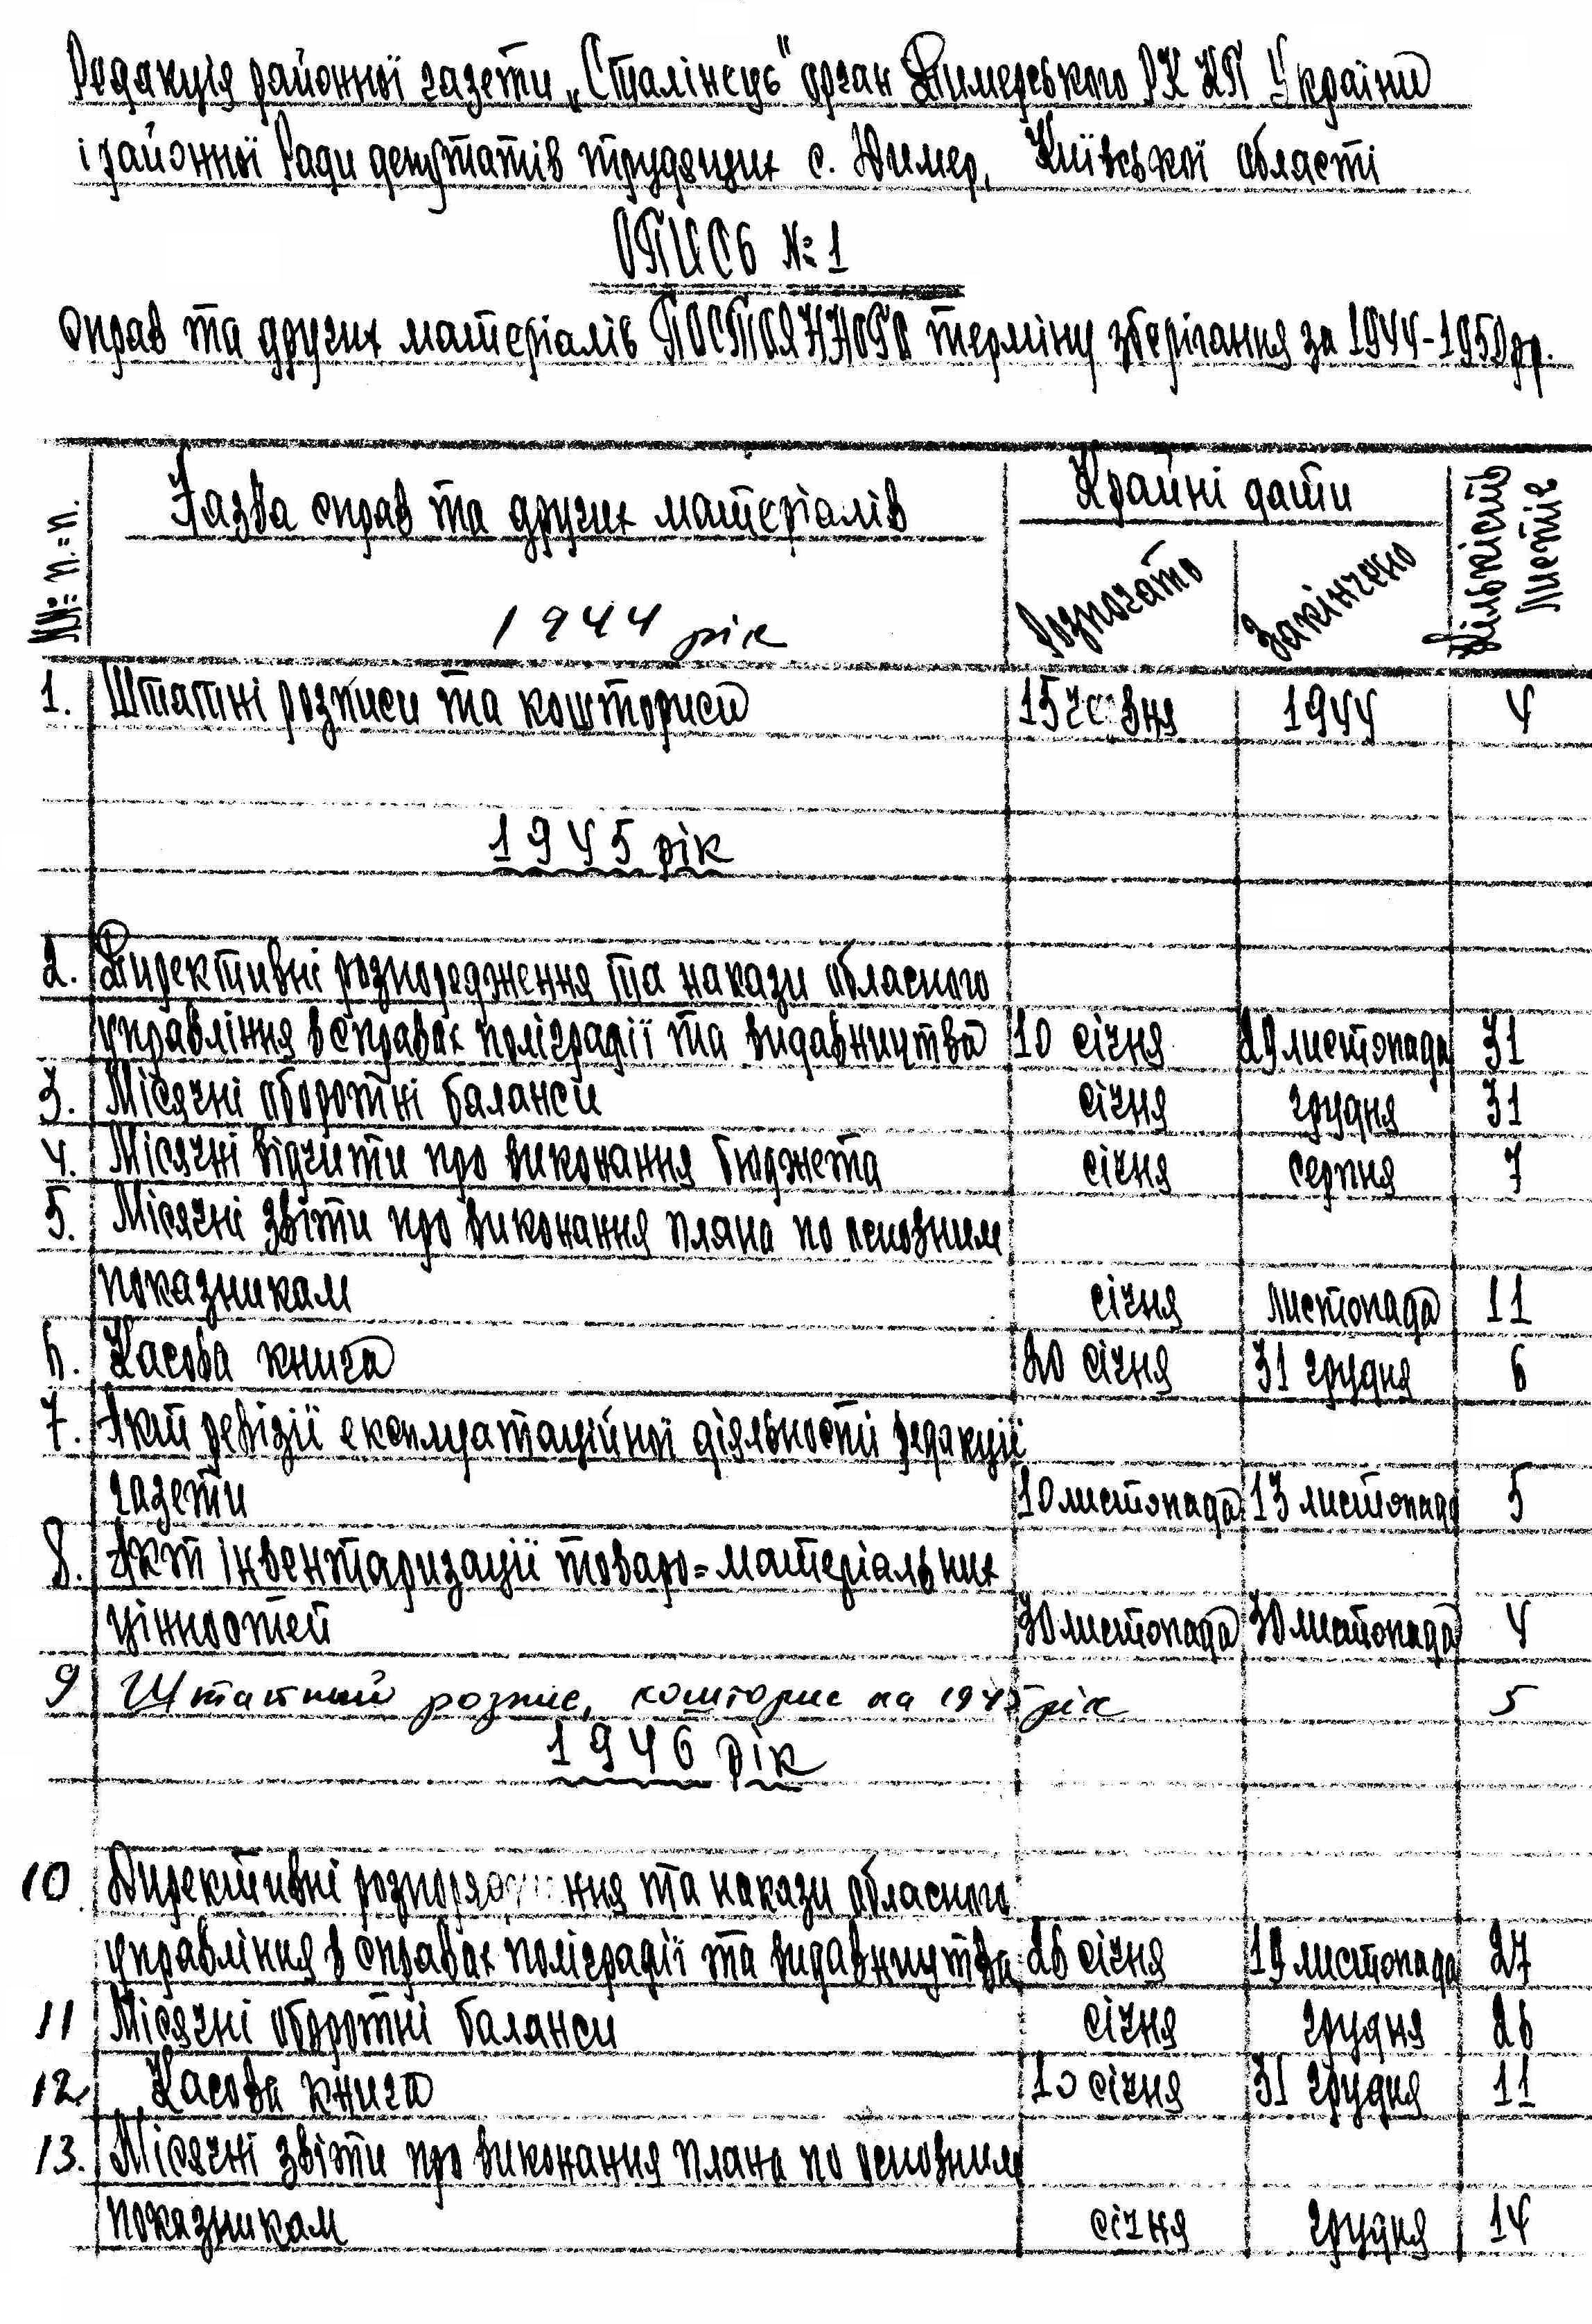 Редакція районної газети „Сталінець" орган Димерського РК КП України
і районної Ради депутатів трудящих с. Димер, Київської області
ОПИСЬ №1
справ та других матеріалів ПОСТОЯННОГО терміну зберігання за 1944-1950 рр.
№№ п.=п. Назва справ та других матеріалів Крайні дати Кількість листів
Розпочато Закінчено
1944 рік
1. Штатні розписи та кошториси 15 1944 4
1945 рік
2. Директивні розпорядження та накази обласного
управління в справах поліграфії та видавництва 10 січня 29 листопада 31
3. Місячні оборотні баланси січня грудня 31
4. Місячні відчити про виконання бюджета січня серпня 7
5. Місячні звіти про виконання плана по основним
показникам січня листопада 11
6. Касова книга 20 січня 31 грудня 6
7. Акт ревізії експлуатаційної діяльності редакції
газети 10 листопада 13 листопада 5
8. Акт інвентаризації товаро=матеріальних
цінностей 30 листопада 30 листопада 4
9 Штатний розпис, кошторис на 1945 рік 5
1946 рік
10 Директивні розпорядження та накази обласного
управління в справах поліграфії та видавництва 26 січня 19 листопада 27
11 Місячні оборотні баланси січня грудня 26
12 Касова книга 10 січня 31 грудня 11
13. Місячні звіти про виконання плана по основним
показникам січня грудня 14